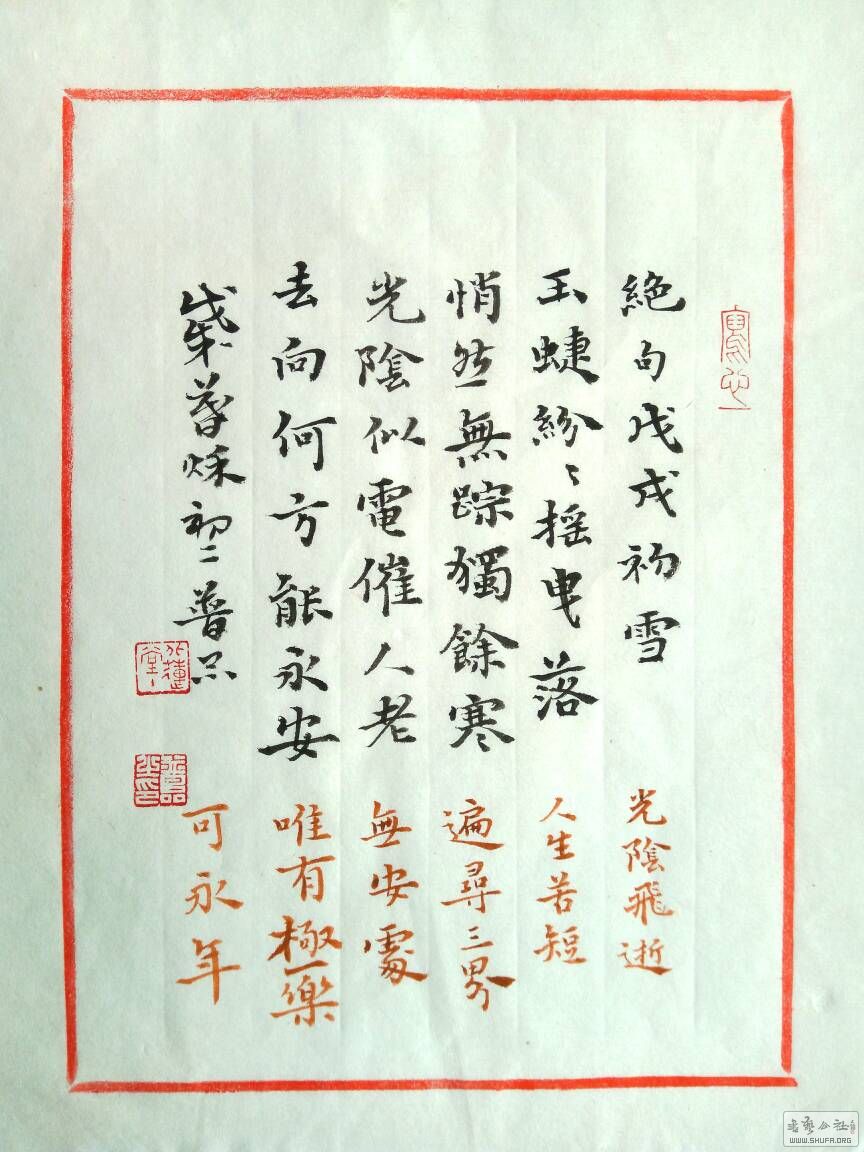 絕句戊戌初雪
玉蜨紛〻摇曳落
悄然無踪獨餘寒
光陰似電催人老
去向何方能永安
歲朱暮秌初二普品
光陰飛逝
人生苦短
遍尋三界
無安處
唯有極樂
可永年
寫心
八蓮堂
WWW.SHUFA.ORG